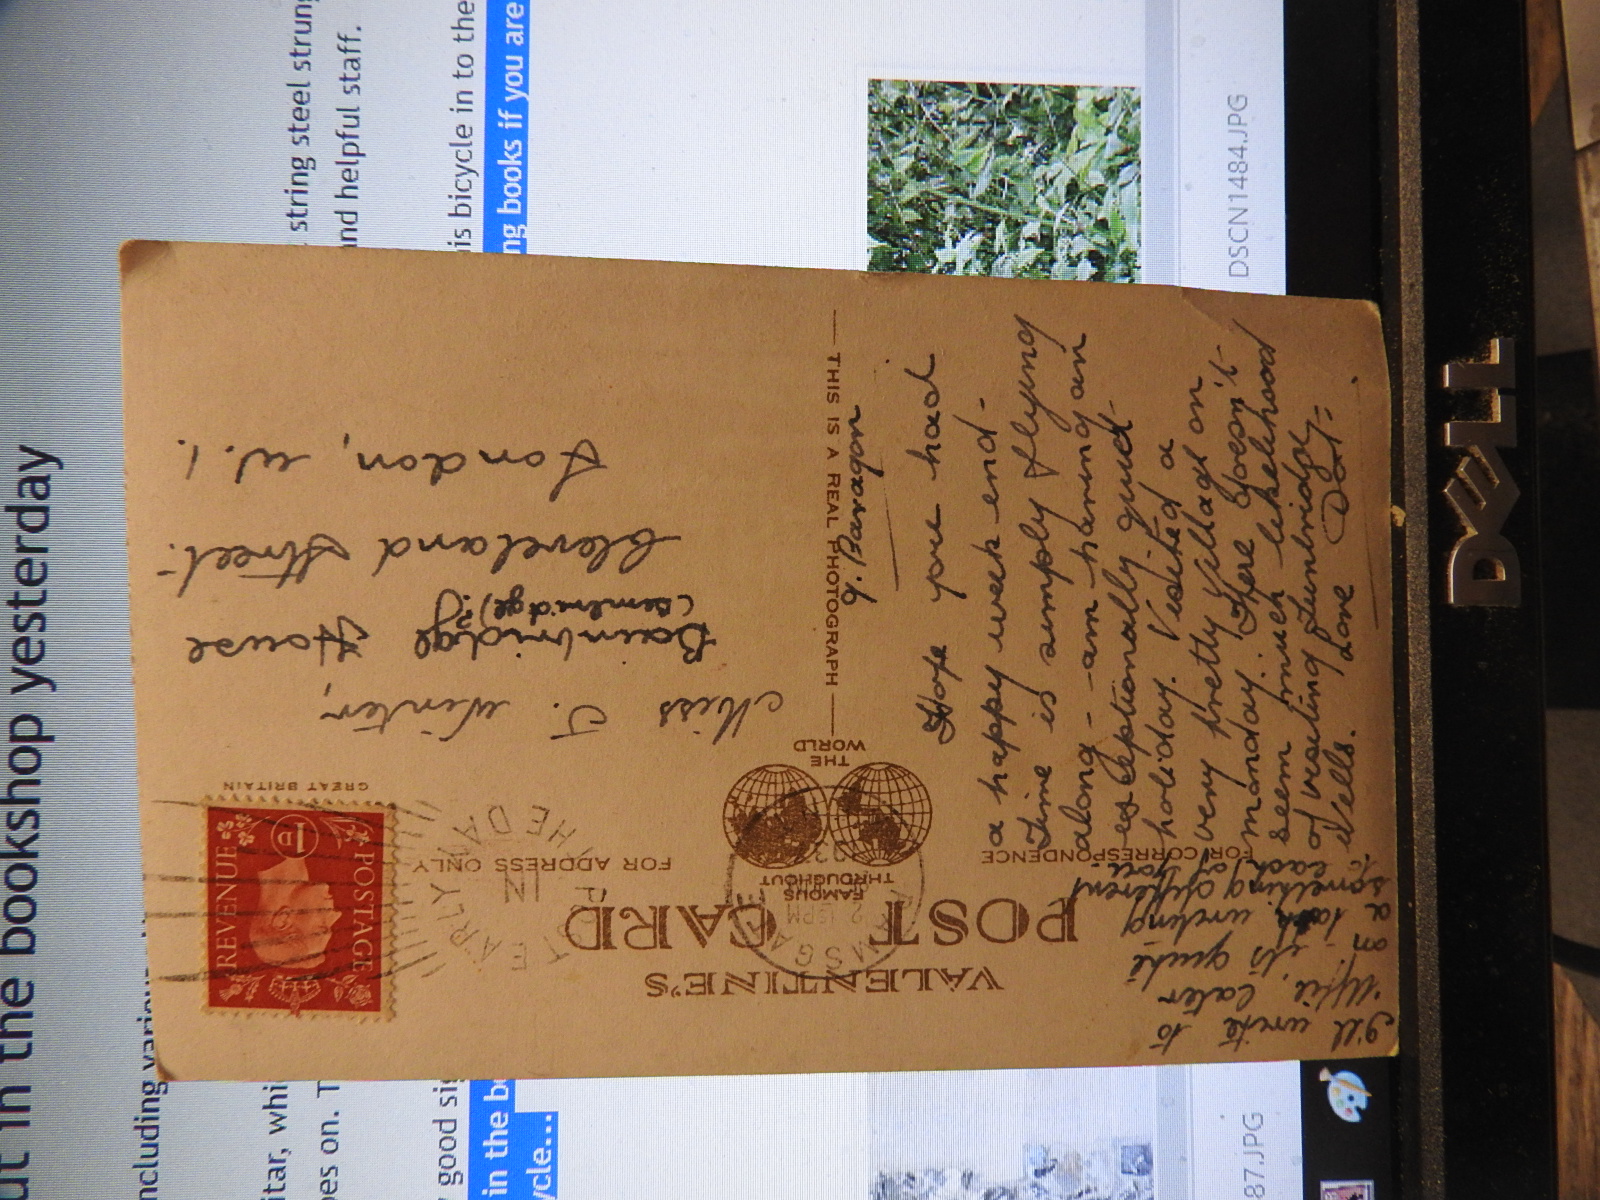 ut in the bookshop yesterday
ncluding variou
string steel strung
itar, whi
and helpful staff.
oes on. T
is bicycle in to the
good si
ng books if you are
in the b
ycle...
DSCN1484.JPG
87.JPG
DELL
VALENTINE'S
POST CARD
FAMOUS
THROUGHOUT
THE
WORLD
FOR CORRESPONDENCE
FOR ADDRESS ONLY
GREAT BRITAIN
POSTAGE
REVENUE
1D
THIS IS A REAL PHOTOGRAPH
EARLY IN THE DAY
2 15PM
Miss J. Winter,
Bainbridge House
(Bembridge)?
Cleveland Street.
London, W.1.
9. Paragon
Hope you had
a happy week end-
Time is simply flying
along - am having an
exceptionally quiet
holiday. Visited a
very pretty village on
monday. There doesn't
seem much likelihood
of visiting Tunbridge
Wells. Love Dot-
I'll write to
later
on - it's quite
a writing
something different
to each of you.